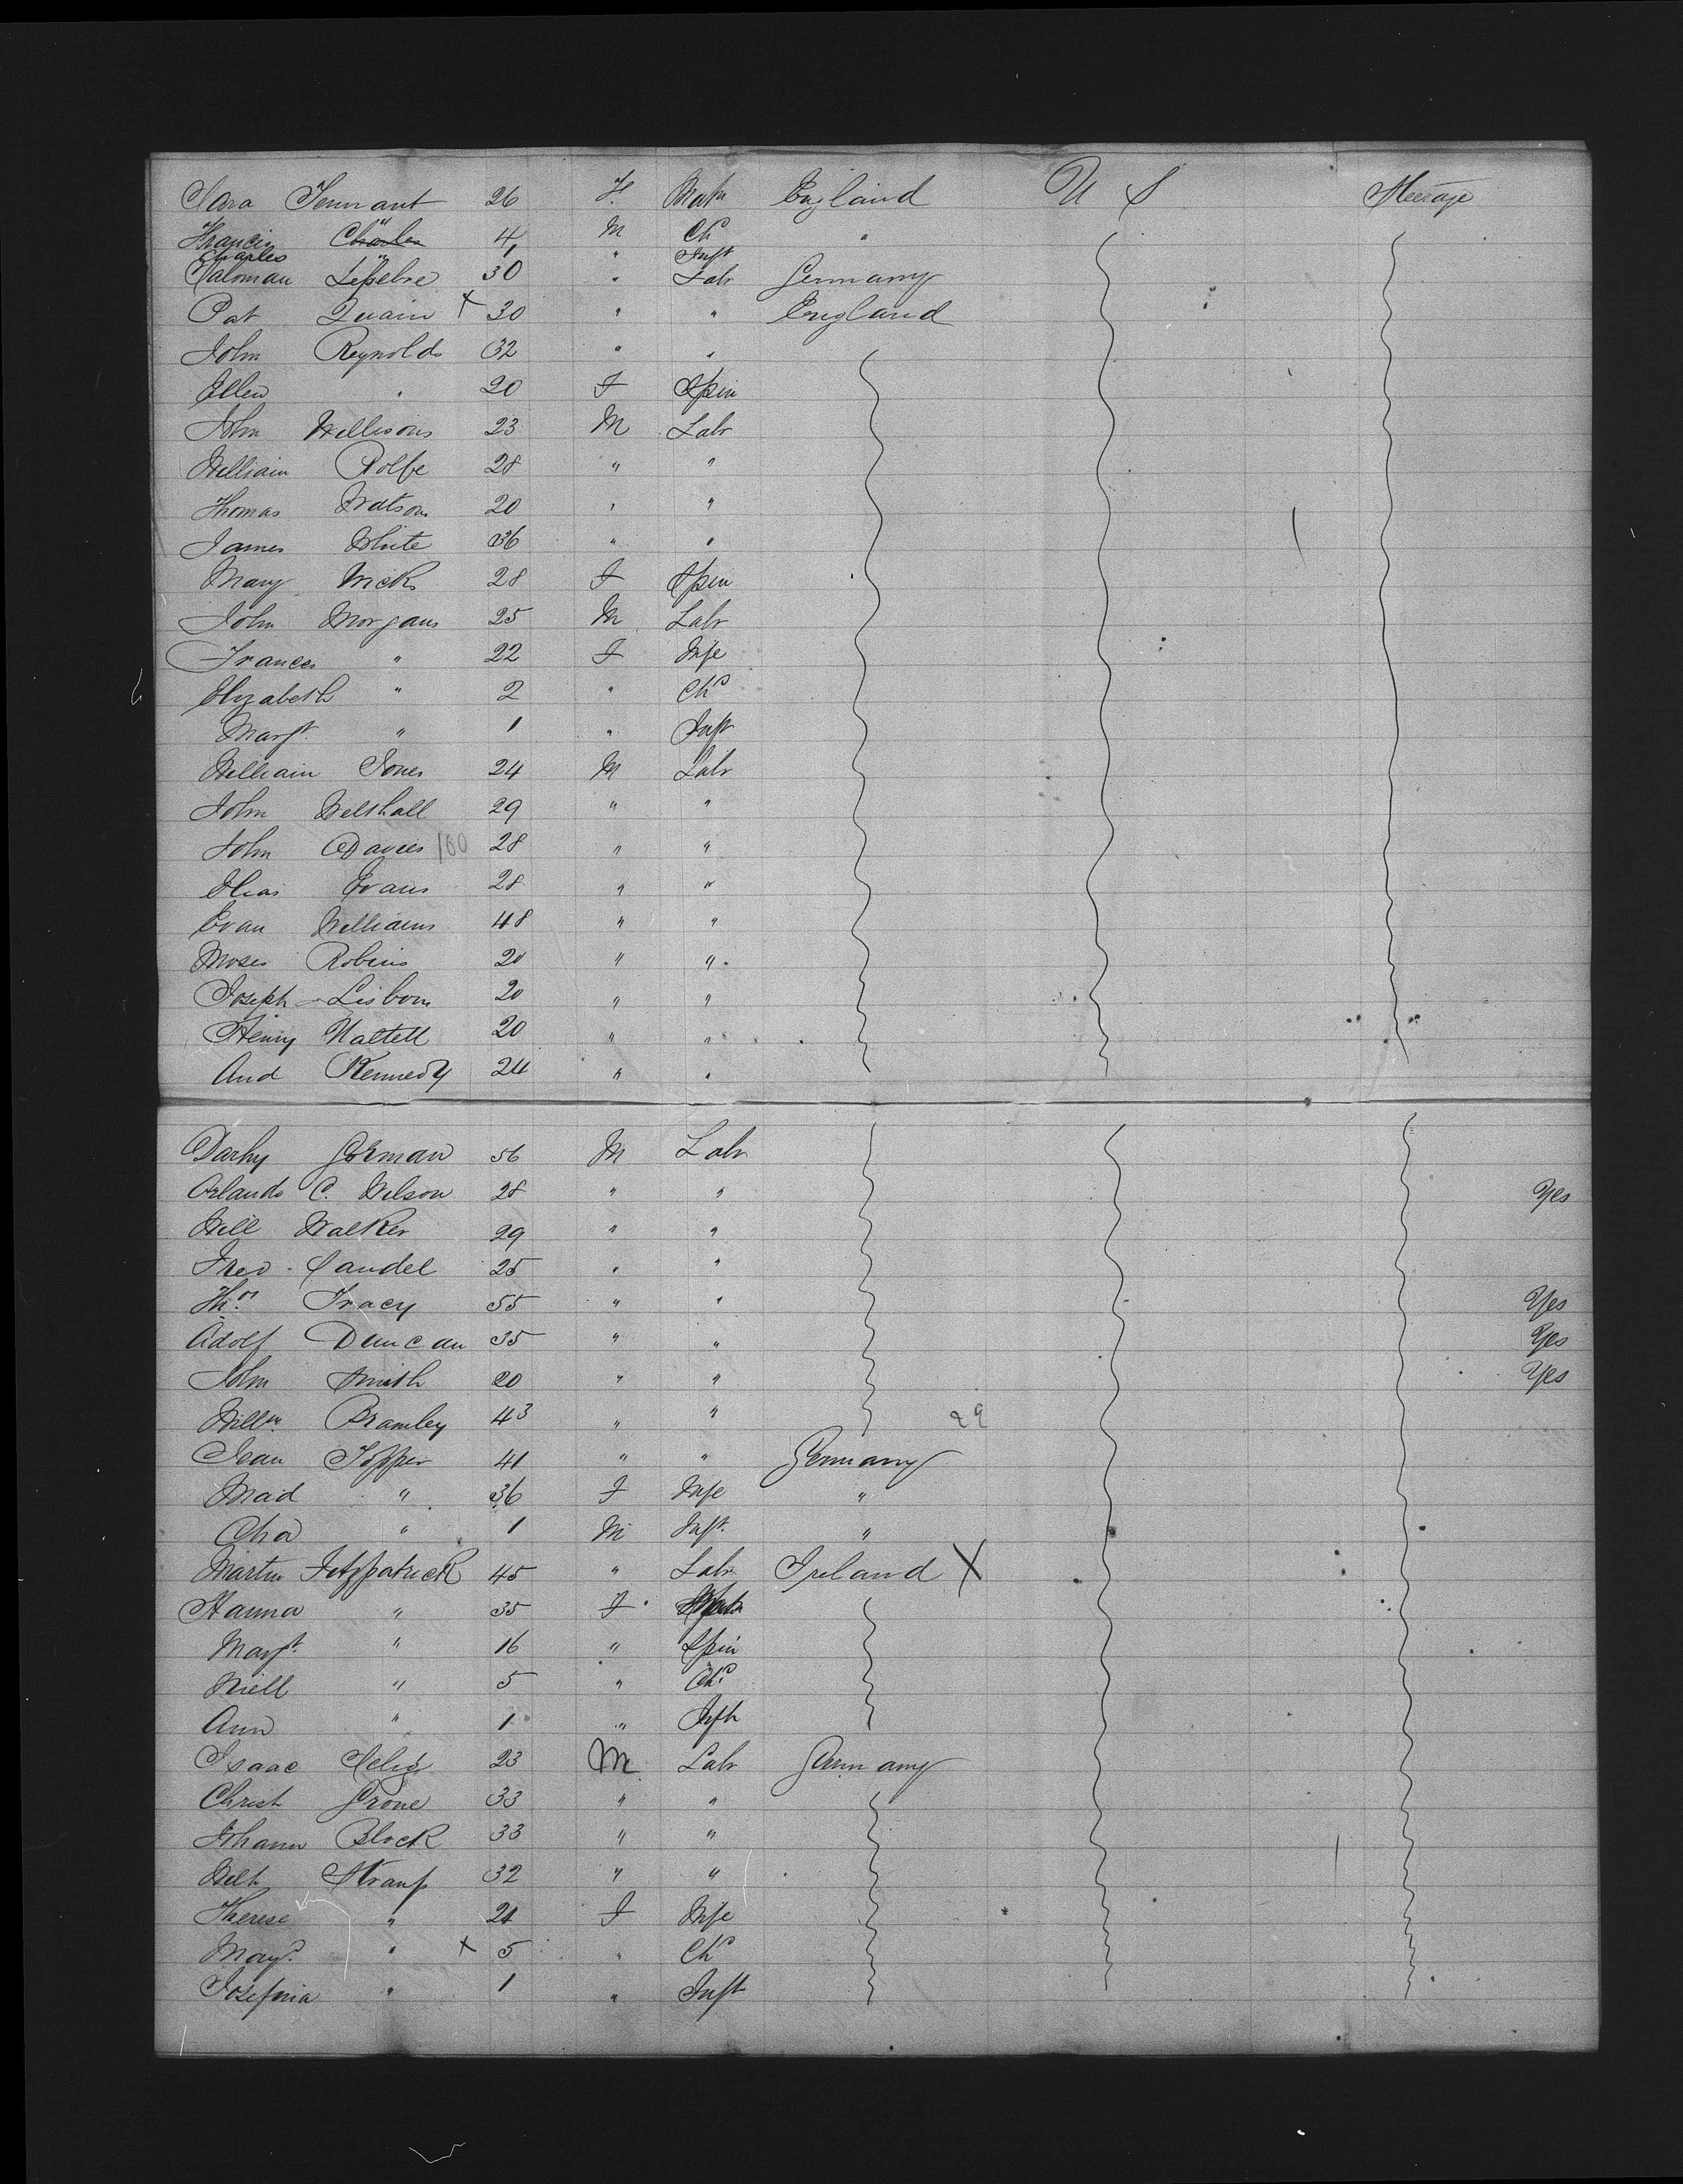 Sara Tennant 26 F. Matn England U S Steerage
Francis " 4 M Chd "
Charles " 1 " Inft
Saloman Lefsebre 30 " Labr Germany
Pat Quain X 30 " " England
John Reynolds 32 " "
Ellen " 20 F Spin
John Willisons 23 M Labr
William Rolfe 28 " "
Thomas Watson 20 " "
James White 36 " "
Mary 28 F Spin
John Morgans 25 M Labr
Frances " 22 F Wife
Elizabeth " 2 " Chd
Margt " 1 " Inft
William Jones 24 M Labr
John Welshall 29 " "
John Davies 100 28 " "
Elias Evans 28 " "
Evan Williams 48 " "
Moses Robins 20 " "
Joseph Lisbom 20 " "
Henry Hattell 20 " "
And Kennedy 24 " "
Darby Gorman 56 M Labr
Orlando C. Wilson 28 " " Yes
Will Walker 29 " "
Fred Candel 25 " "
Thos Tracy 55 " " Yes
Adolf Duncan 35 " " Yes
John Smith 20 " " Yes
Willm Bramley 43 " " 29
Jean Topper 41 " " Germany
Mad " 36 F Wife "
Cha " 1 M Inft. "
Martin Fitzpatrick 45 " Labr Ireland X
Hanna " 35 F
Margt " 16 " Spin
Niell " 5 " Chd
Ann " 1 " Inft
Isaac Selig 23 M Labr Germany
Christ Grone 33 " "
Johann Block 33 " "
Wilh Straup 32 " "
Therese " 24 F Wife
" X 5 " Chd
Josefina " 1 " Inft